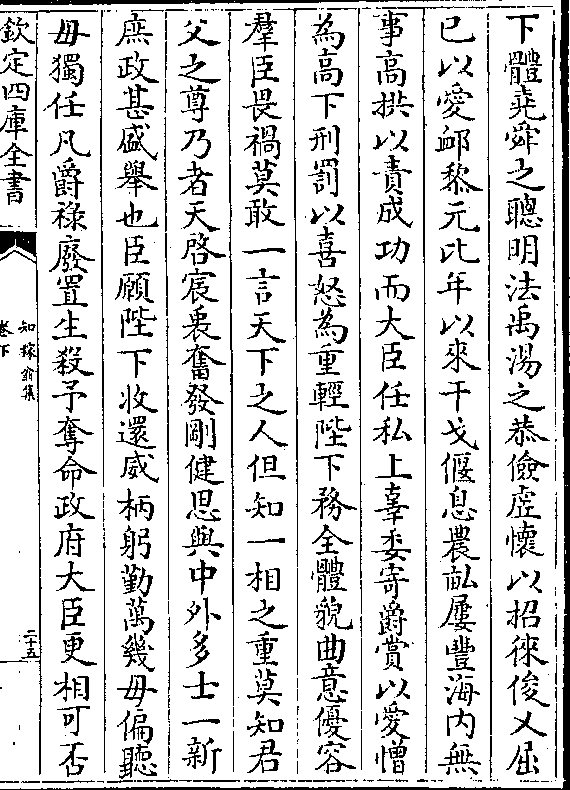 下體堯舜之聰明法禹湯之恭儉虛懷以招徠俊乂屈
已以愛邺黎元比年以來干戈偃息農畝屢豐海内無
事高拱以責成功而大臣任私上辜委寄爵賞以愛憎
為高下刑罰以喜怒為重輕陛下務全體貌曲意優容
羣臣畏禍莫敢一言天下之人但知一相之重莫知君
父之尊乃者天啓宸衷奮發剛健思與中外多士一新
庶政甚盛舉也臣願陛下收還威柄躬勤萬幾毋偏聽
毋獨任凡爵祿廢置生殺予奪命政府大臣更相可否
欽定四庫全書
知稼翁集
卷下
二十五